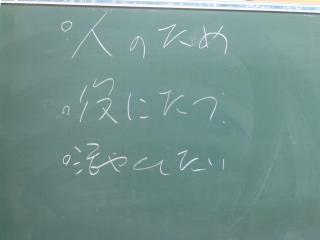 ○人のため
○役にたつ。
○活やくしたい